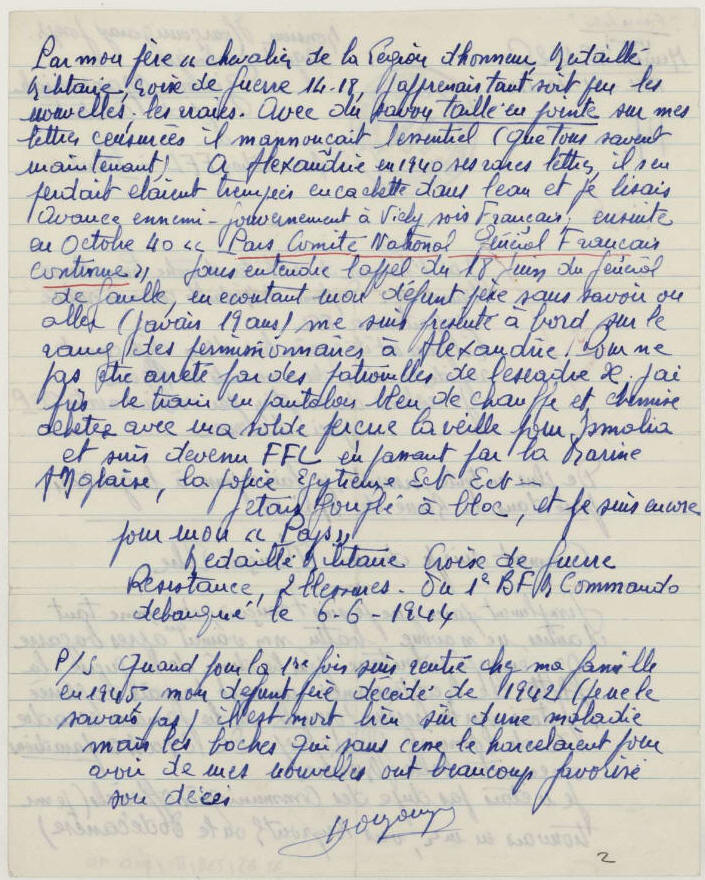 Par mon père « chevalier de la Légion d'honneur, Médaillé
Militaire, Croix de Guerre 14-18, J'apprenais tant soit peu les
nouvelles : les vraies. Avec du savon taillé en pointe sur mes
lettres censurées il m'annonçait l'essentiel (que tous savent
maintenant) A Alexandrie en 1940 ses rares lettres, il s'en
perdait étaient trempées en cachette dans l'eau et je lisais
Avance ennemi - gouvernement à Vichy sois Français, ensuite
en Octobre 40 « Pars Comité National Général Français
continue » Sans entendre l'appel du 18 Juin du Général
de Gaulle, en écoutant mon défunt père sans savoir où
aller (J'avais 19 ans) me suis présenté à bord sur le
rang des permissionnaires à Alexandrie. Pour ne
pas être arrêté par des patrouilles de l'escadre X. j'ai
pris le train en pantalon bleu de chauffe et chemise
achetés avec ma solde perçue la veille pour Ismalia
et suis devenu FFL en passant par la Marine
Anglaise, la police Egytienne Ect Ect —
J'étais gonflé à bloc, et je suis encore
pour mon « Pays »
Médaillé Militaire Croix de Guerre
Résistance, 2 blessures. Du 1e BFM Commando
débarqué le 6-6-1944
P/S Quand pour la 1re fois suis rentré chez ma famille
en 1945 mon défunt père décédé de 1942 (Je ne le
savais pas il est mort bien sûr d'une maladie
mais les boches qui sans cesse le harcelaient pour
avoir de mes nouvelles ont beaucoup favorisé
son décès
2